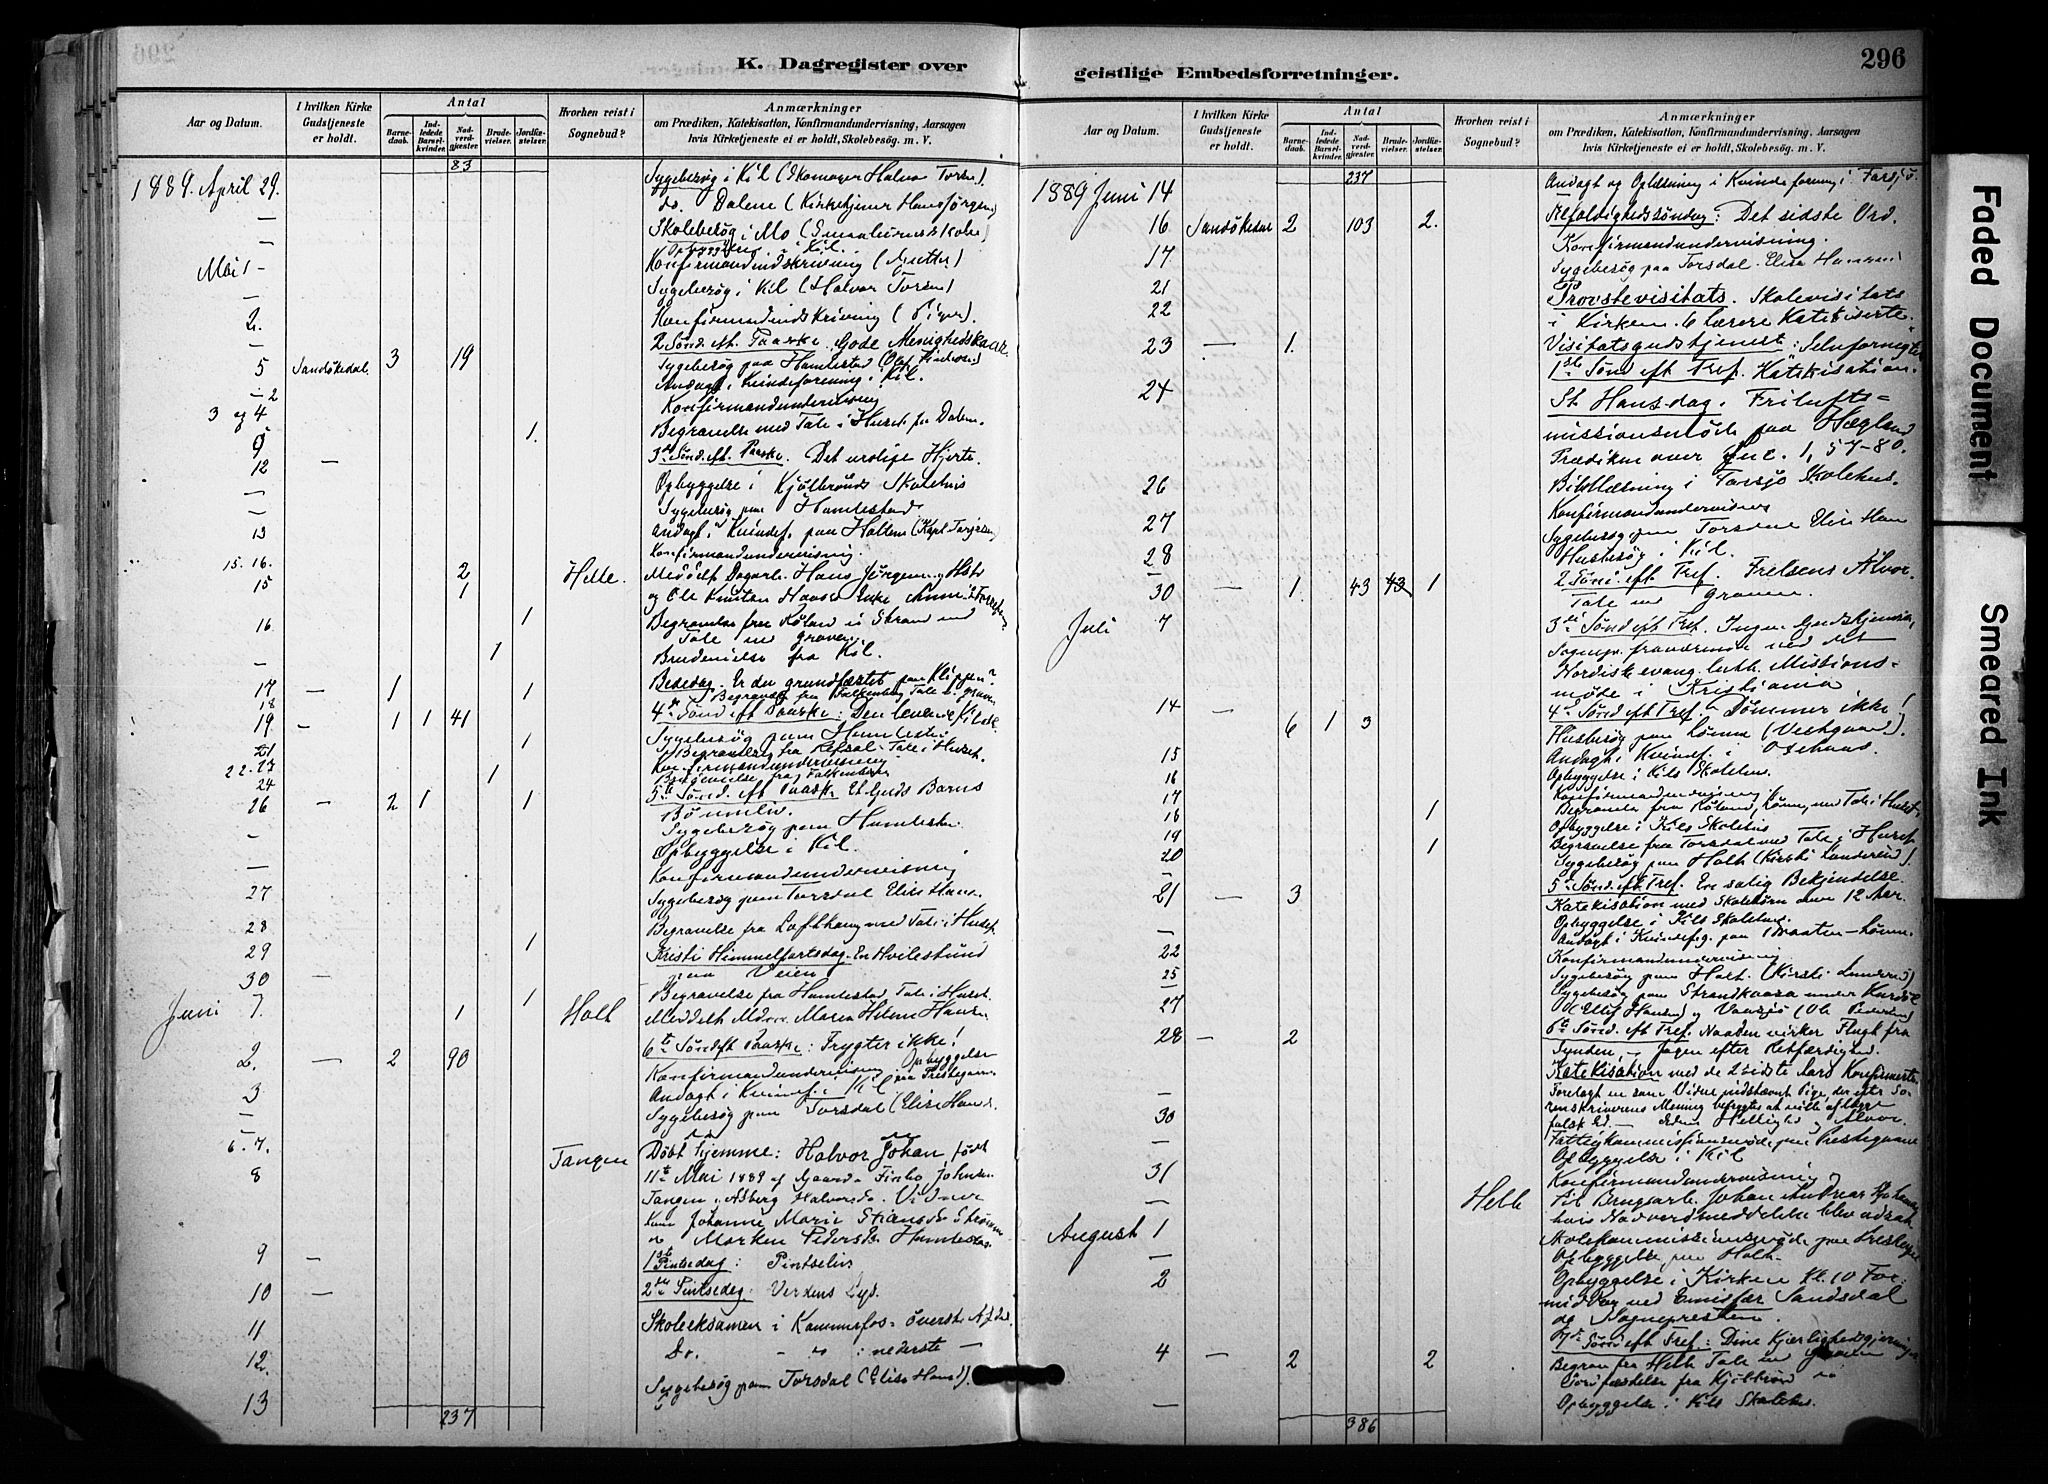 K. Dagregister over
geistlige Embedsforretninger.
296
Aar og Datum.
I hvilken Kirke Gudstjeneste er holdt.
Antal
Barnedaab.
Indledede Barselkvinder.
Nadverdgjester
Brudevielser.
Jordfæstelser.
Hvorhen reist i Sognebud?
Anmærkninger
om Prædiken, Katekisation, Konfirmandundervisning, Aarsagen
hvis Kirketjeneste ei er holdt, Skolebesøg. m. V.
83
1889. April 29. Sygebesøg i Kil (Skomager Halvor Torse).
— do. Dalene (Kirketjener Hans Jørgen)
— Skolebesøg i Mo (Smaaturnes Skole)
Opbyggelse i Kil.
Mai 1 - Konfirmandindskrivning (Gutter)
— Sygebesøg i Kil (Halvor Torsen)
2. Konfirmandindskrivning (Piger).
5 Sandökedal. 3 19 2 Sönd. eft. Paaske. Gode Menighedskaar.
— Sygebesøg paa Humlestad
Andagt i Kvindeforening i Kil.
3 og 4 Konfirmandundervisning
9 1. Begravelse med Tale i Huset fra Dalen.
12 — 3die Sönd. eft. Paaske. Det urolige Hjerte.
— Opbyggelse i Kjölbrönds Skolehus
— Sygebesøg paa Humlestad
13 Andagt i Kvindef. paa Holtene
15. 16. Konfirmandundervisning.
15 2 Helle. Meddelt Dagarb. Hans Jörgen
1 og Ole Knutsen Haases Enke
16. 1 Begravelse fra Röland i Strand med
Tale ved Graven.
— 1 Brudevielse fra Kil.
17 — 1 1 Bededag. Er du grundfæstet paa Klippen?
18 Begravelse fra Falkenberg Tale v. Graven
19 — 1 1 41 4de Sönd eft Paaske: Den levende Kilde.
Sygebesøg paa Humlestad
21 1 Begravelse fra Refsal. Tale i Huset.
22. 23 Konfirmandundervisning
24 1 Brudevielse fra Falkenberg
26 — 2 1 1 5te Sönd. eft Paaske Et Guds Barns
Bönneliv.
— Sygebesøg paa Humlestad.
— Opbyggelse i Kil.
27 Konfirmandundervisning
28 Sygebesøg paa Torsdal Elise Hans.
29 1 Begravelse fra Lofthaug med Tale i Huset
30 — Kristi Himmelfartsdag. En Hvilestund
paa Veien
Juni 7. 1 Begravelse fra Humlestad Tale i Huset.
1 Holt Meddelt Maren Helene Hansen
2. — 2 90 6te Sönd eft Paaske: Frygter ikke!
Opbyggelse
3 Konfirmandundervisning paa Prestegaarden
— Andagt i Kvindef. i Kil
6. 7. Sygebesøg paa Torsdal (Elise Hans.
8 Tangen Döbt hjemme: Halvor Johan, född
11te Mai 1889 af Gaardb. Finbo Johnsen
Tangen, Asberg Halvorsd. Vidner
Johanne Marie Stiansd. Strömme
Maren Pedersd. Humlestad.
9 — 1ste Pintsedag: Pintseliv
10 — 2den Pintsedag: Verdens Lys.
11 Skoleeksamen i Kammerfos - överste Afdel.
12. Do. - " : nederste —
13 Sygebesøg paa Torsdal (Elise Hans).
237
Aar og Datum.
I hvilken Kirke Gudstjeneste er holdt.
Antal
Barnedaab.
Indledede Barselkvinder.
Nadverdgjester
Brudevielser.
Jordfæstelser.
Hvorhen reist i Sognebud?
Anmærkninger
om Prædiken, Katekisation, Konfirmandundervisning, Aarsagen
hvis Kirketjeneste ei er holdt, Skolebesøg. m. V.
237
1889 Juni 14 Andagt og Oplæsning i Kvindeforening i Farsjö.
16 Sandökedal 2 103 2. Trefoldighedssöndag: Det sidste Ord.
17 Konfirmandundervisning.
21 Sygebesøg paa Torsdal. Elise Hansen
22 Provstevisitats. Skolevisitats
i Kirken. 6 Lærere Katekiserte.
23 — 1. Visitatsgudstjeneste: Selvfornegtelse
1ste Sönd eft Tref. Katekisation.
24 St Hansdag. Frilufts-
missionsmöde paa Hægland
Prædiken over Luc. 1, 57-80.
26 Biblelæsning i Farsjö Skolehus.
27 Konfirmandundervisning
28 Sygebesøg paa Torsdal Elise Han
— Husbesøg i Kil.
30 — 1. 43 43 1 2 Sönd. eft Tref. Frelsens Alvor.
Tale ved Graven.
Juli 7 3die Sönd eft Tref. Ingen Gudstjeneste,
Sognepr. fraværende ved det
Nordisk evang. luth. Missions-
möde i Kristiania
14 — 6 1 3 4de Sönd eft Tref. Dömmer ikke!
Husbesøg paa Lönne (Vestgaard).
15 Andagt i Kvindef. i Oxehaas.
16 Opbyggelse i Kils Skolehus.
17 Konfirmandundervisning
16 1 Begravelse fra Röland, Lönne, med Tale i Huset
19 Opbyggelse i Kils Skolehus
20 1 Begravelse fra Torsdal med Tale i Huset
— Sygebesøg paa Holt (Kirsti Lunderød).
21 — 3 5te Sönd eft Tref. En salig Bekjendelse.
Katekisation med Skolebörn over 12 Aar.
— Opbyggelse i Kils Skolehus.
22 Andagt i Kvindefg. paa Braaten - Lönne.
25 Konfirmandundervisning
— Sygebesøg paa Holt. (Kirsti Lunderød)
27 Sygebesøg paa Strandkaasa under Kurdöl
(Ellef Hansen) og Vaasjö (Ole Pedersen)
28 — 2 6te Sönd. eft Tref. Naaden virker Flugt fra
Synden, - Jagen efter Retfærdighed.
Katekisation med de 2 sidste Aars Konfirmerte
— Foretagt en som Vidne indstævnt Pige, der efter So-
30 renskriverens Mening befrygtes at ville aflægge
falsk Ed. — Edens Hellighed og Alvor.
— Fattigkommissionsmöde paa Prestegaarden
31 Opbyggelse i Kil
— Konfirmandundervisning
Helle Til Brugsarb. Johan Andreas
hvis Nadverdmeddelelse blev udsat
August 1 Skolekommissionsmöde paa Prestegd.
— Opbyggelse paa Holt.
2 Opbyggelse i Kirken Kl. 10 For-
middag ved Emissær Sandsdal
og Sognepresten.
4 — 2 2 7de Sönd eft Tref: Dine Kjærlighedsgjerninger
Begrav. fra Helle Tale ved Graven
Jordfæstelse fra Kjölbrönd
— Opbyggelse i Kils Skolehus.
386
Faded Document
Smeared Ink